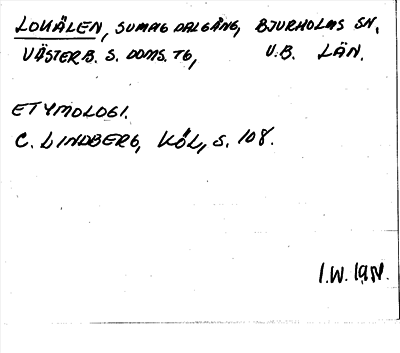 LOKÄLEN, SUMPIG DALGÅNG, BJURHOLMS SN,
VÄSTERB. S. DOMS. TG, V.B. LÄN.
ETYMOLOGI.
C. LINDBERG, KÖL, S. 108.
I.W.